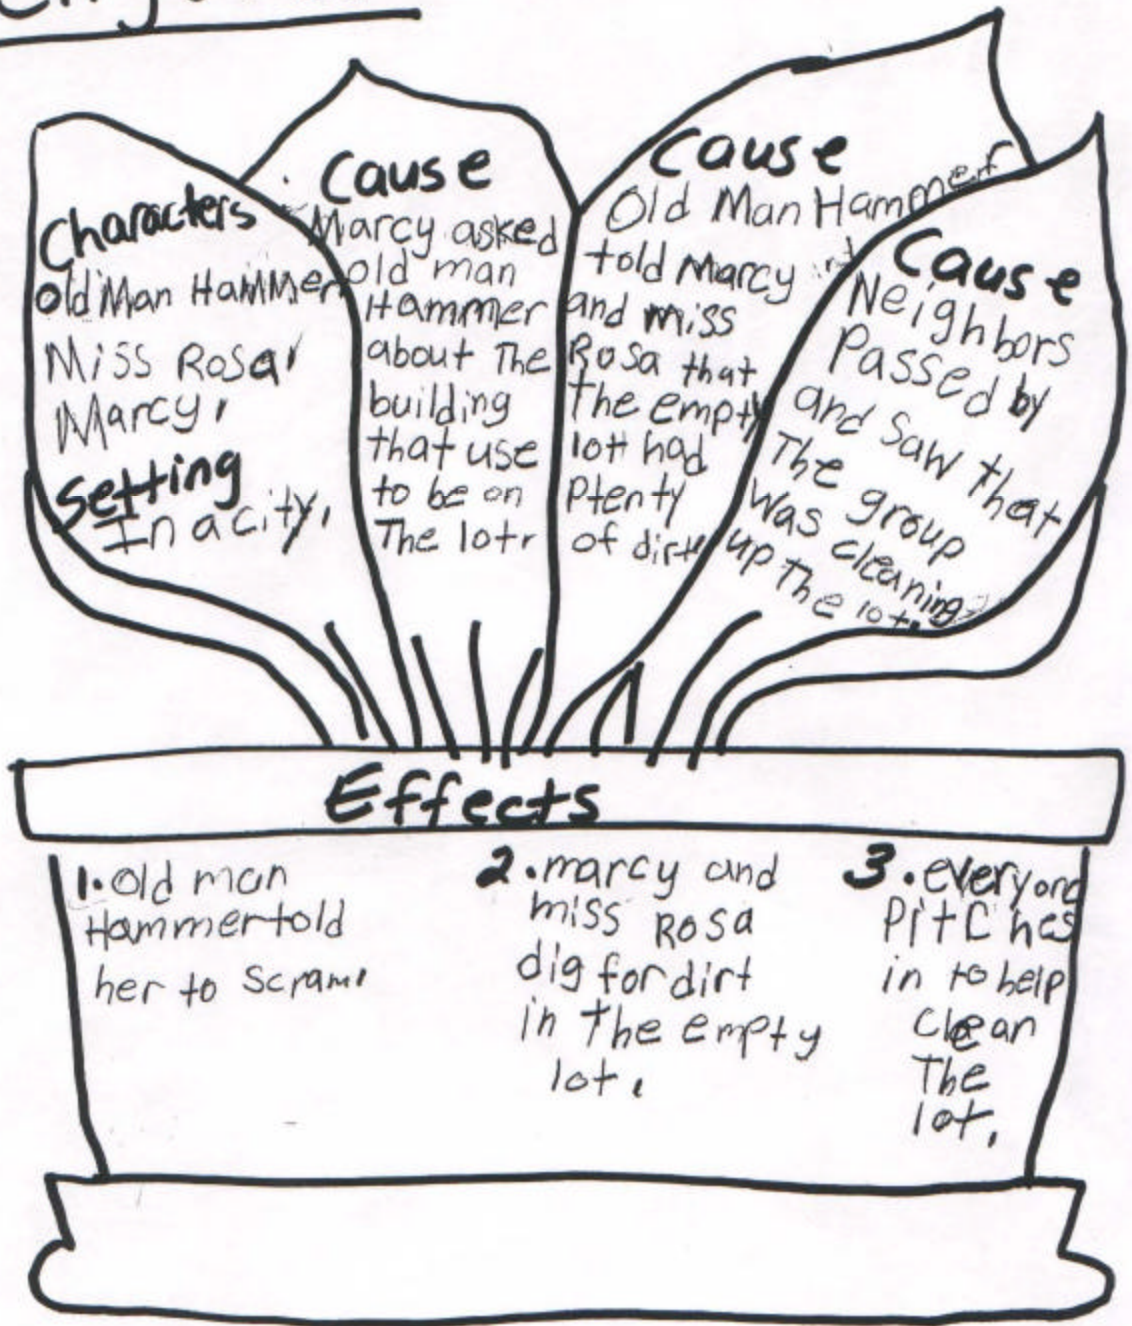 Characters
Old Man Hammer
Miss Rosa,
Marcy,
Setting
In a city,
Cause
Marcy asked
old man
Hammer
about The
building
that use
to be on
The lot,
Cause
Old Man Hammer
told Marcy
and miss
Rosa that
the empty
lott had
Plenty
of dirt
Cause
Neighbors
Passed by
and saw that
The group
was cleaning
up the lot.
Effects
1. old man
Hammer told
her to scram,
2. marcy and
miss Rosa
dig for dirt
in the empty
lot,
3. everyone
PitChes
in to help
clean
The
lot,